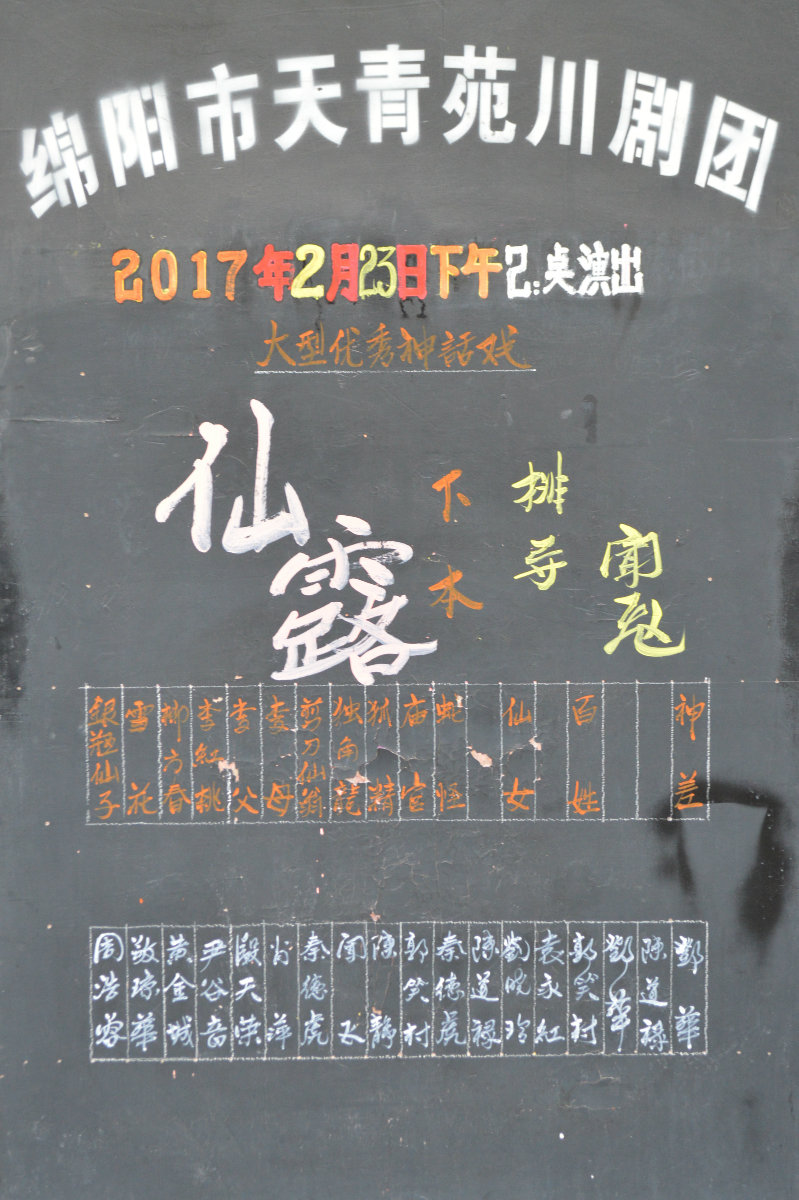 绵阳市天青苑川剧团
2017年2月23日下午2:桌演出
大型优秀神話戏
仙露
下本
排导
闻飞
銀瓶仙子
雪花
柳方春
李紅桃
李父
李母
剪刀仙翁
独角龍
狐精
庙官
蛇怪
仙女
百姓
神差
周浩容
敬琼華
黄金城
尹谷音
段天荣
萍
秦德虎
闻飞
陳靜
郭笑村
秦德虎
陈道禄
劉晓玲
袁永紅
郭笑村
鄧華
陈道禄
鄧華